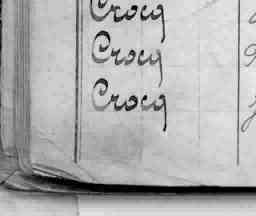 Crocq
Crocq
Crocq